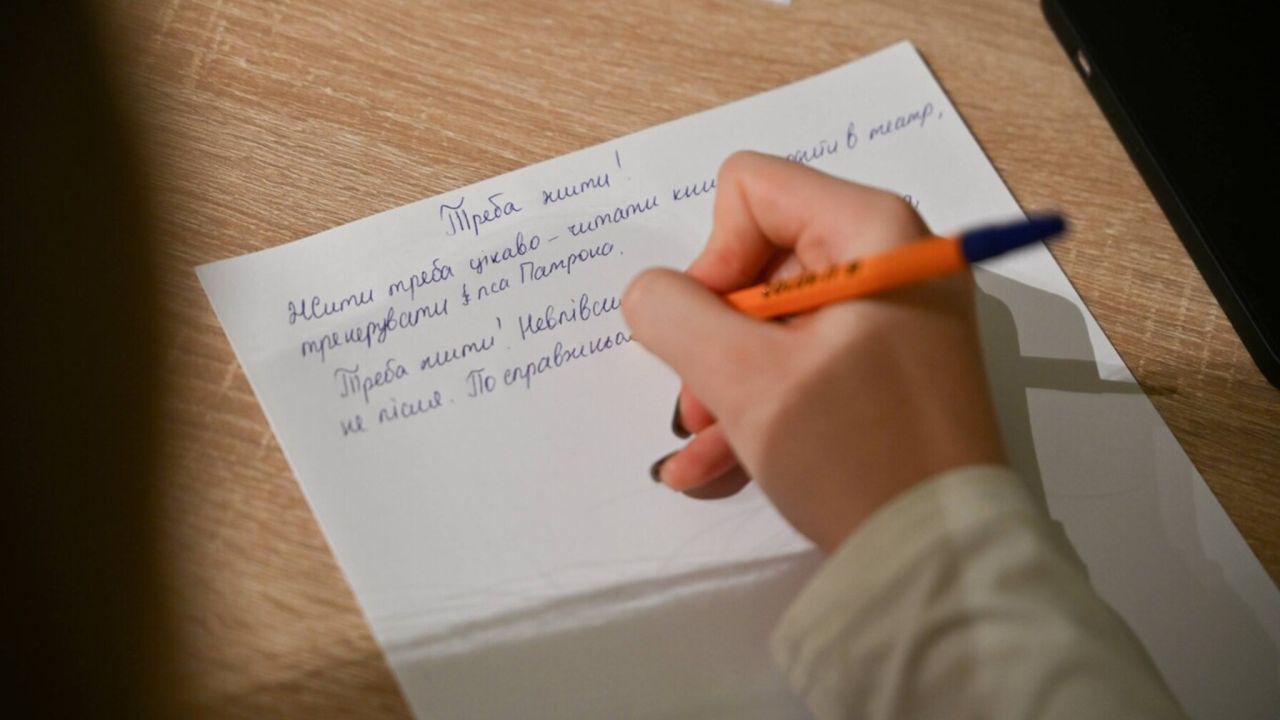 Треба жити!
Жити треба цікаво – читати в театр,
тренерувати пса Патрона.
Треба жити!
не після. По справжньо